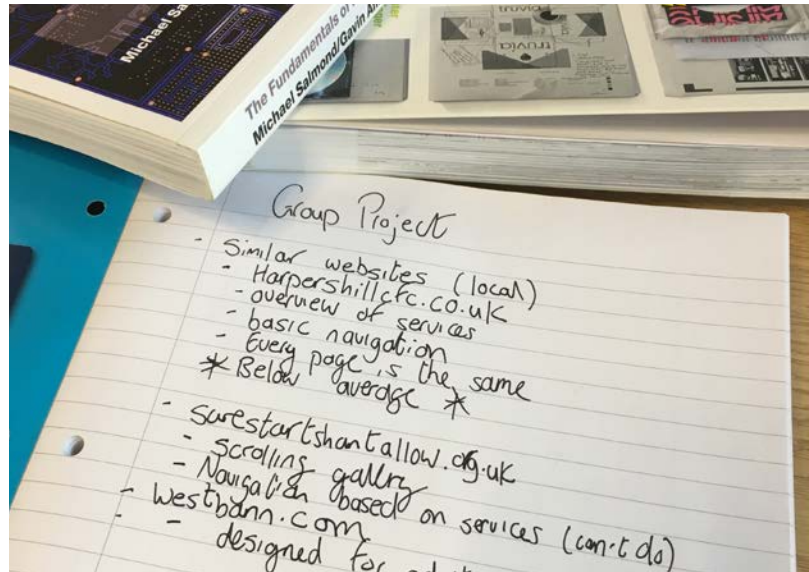 Michael Sa
The Fundamentals of
Michael Salmond/Gavin
truvia
truvia
Group Project
- Similar websites (local)
- Harpershillcfc.co.uk
- overview of services
- basic navigation
- Every page is the same
* Below average *
- surestartshantallow.org.uk
- scrolling gallery
- Navigation based on services (can't do)
- westbann.com
- designed for